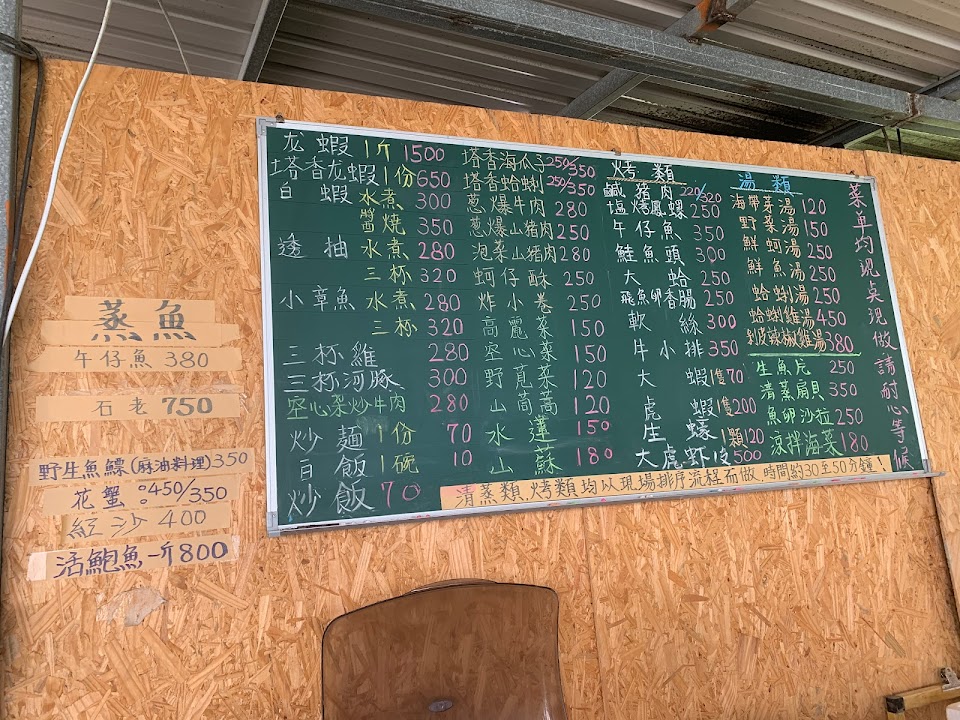 蒸魚
午仔魚 380
石老 750
野生魚鰾(麻油料理)350
花蟹:450/350
紅沙 400
活鮑魚一斤800
龙蝦1斤1500
塔香龙蝦1份650
白蝦水煮300
醬燒350
透抽水煮280
三杯320
小章魚水煮280
三杯320
三杯雞280
三杯河豚300
空心菜炒牛肉280
炒麵1份70
白飯1碗10
炒飯70
塔香海瓜子250/350
塔香蛤蜊250/350
葱爆牛肉280
葱爆山猪肉250
泡菜山猪肉280
蚵仔酥250
炸小卷250
高麗菜150
空心菜150
野莧菜120
山茼蒿120
水蓮150
山蘇180
烤類
鹹猪肉220/320
塩烤鳳螺250
午仔魚350
鮭魚頭300
大蛤250
飛魚卵香腸250
軟絲300
牛小排350
大蝦1隻70
虎蝦1隻200
生蠔1顆120
大虎虾皮500
湯類
海帶芽湯120
野菜湯150
鮮蚵湯250
鮮魚湯250
蛤蜊湯250
蛤蜊雞湯450
剝皮辣椒雞湯380
生魚片250
清蒸扇貝350
魚卵沙拉250
涼拌海菜180
菜单均現桌現做請耐心等候
清蒸類,烤類均以現場排序流程而做,時間約30至50分鐘、